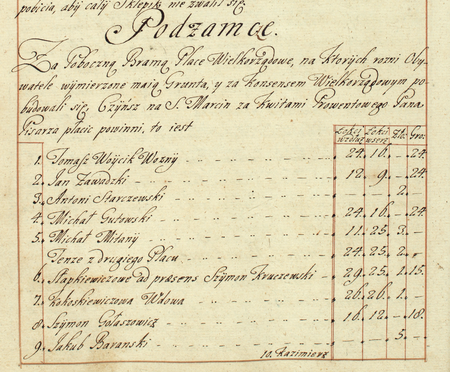 pobicia, aby cały Sklepik nie zwalił się.
Podzamcze.
Za Poboczną Bramą Place Wielkorządowe, na których rozni Oby-
watele wymierzone maią Grunta, y za Konsensem Wielkorządowym po-
budowali się, Czynsz na S. Marcin za Kwitami Prowentowego Pana
Pisarza płacic powinni, to iest
Łokci wzdłuż Łokci wszerz Zło: Gro:
1. Tomasz Woycik Wozny 24. 16. . 24.
2. Jan Zawadzki 12. 9. . 24.
3. Antoni Starczewski 2.
4. Michał Gutowski 24. 16. . 24.
5. Michał Mitany 11. 25. 3. .
Tenze z drugiego Placu 24. 25. 2. .
6. Słapkiewiczowe ad præsens Szymon Kruczewski 29. 25. 1. 15.
7. Kokoskiewiczowa Wdowa 26. 26. 1. .
8. Szymon Gołaszowicz 16. 12. . 18.
9. Jakub Baranski 5. .
10. Kazimierz